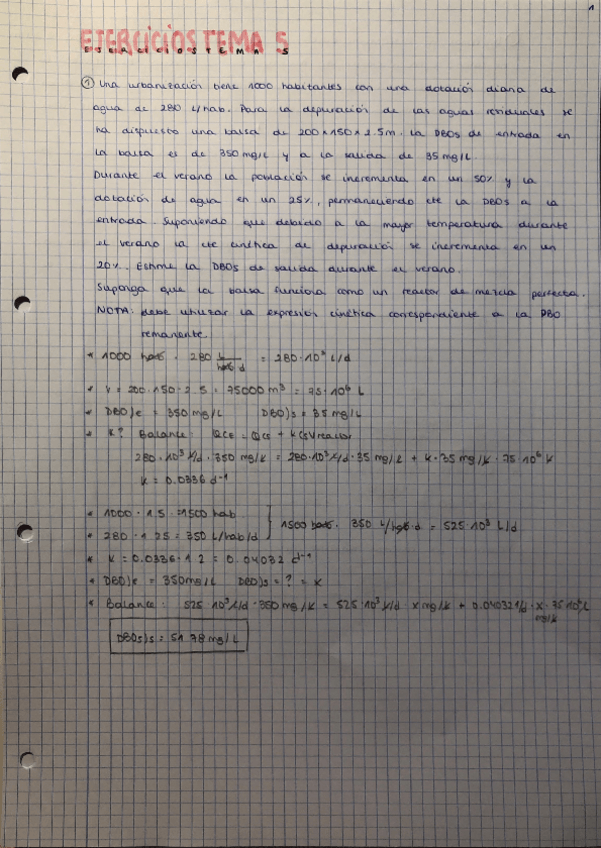 1
EJERCICIOS TEMA 5
EJERCICIOS TEMA 5
① Una urbanización tiene 1000 habitantes con una dotación diaria de
agua de 280 L/hab. Para la depuración de las aguas residuales se
ha dispuesto una balsa de 200x150x2.5m. La DBO5 de entrada en
la balsa es de 350 mg/L y a la salida de 35 mg/L.
Durante el verano la población se incrementa en un 50% y la
dotación de agua en un 25%, permaneciendo cte la DBO5 a la
entrada. Suponiendo que debido a la mayor temperatura durante
el verano la cte cinética de depuración se incrementa en un
20%. Estime la DBO5 de salida durante el verano.
Suponga que la balsa funciona como un reactor de mezcla perfecta.
NOTA: debe utilizar la expresión cinética correspondiente a la DBO
remanente.
* 1000 hab · 280 L/hab·d = 280·10³ L/d
* V = 200·150·2.5 = 75000 m³ = 75·10⁶ L
* DBO)e = 350 mg/L DBO)s = 35 mg/L
* K? Balance: QCe = QCs + KCsVreactor
280·10³ L/d · 350 mg/L = 280·10³ L/d · 35 mg/L + K·35 mg/L · 75·10⁶ L
K = 0.0336 d⁻¹
* 1000·1.5 = 1500 hab
* 280·1.25 = 350 L/hab/d } 1500 hab · 350 L/hab·d = 525·10³ L/d
* K = 0.0336·1.2 = 0.04032 d⁻¹
* DBO)e = 350mg/L DBO)s = ? = x
* Balance: 525·10³ L/d · 350 mg/L = 525·10³ L/d · x mg/L + 0.04032 1/d · x · 75·10⁶ L
mg/L
DBO5)s = 51.78 mg/L